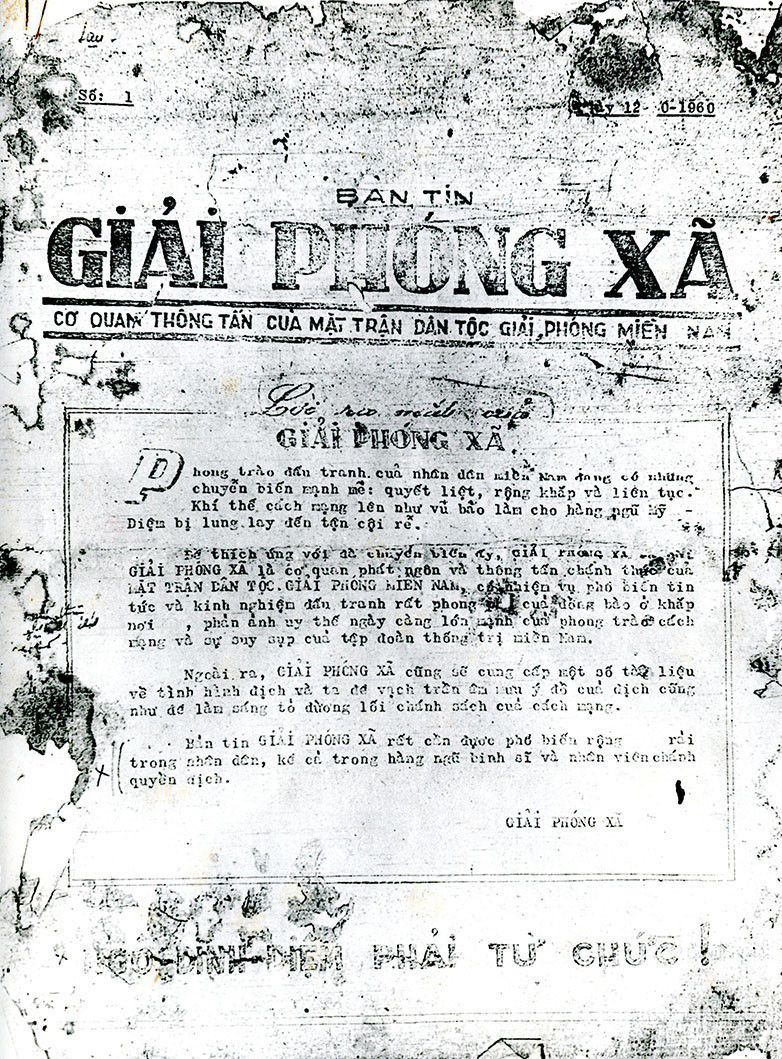 Số: 1
12- 0-1960
BẢN TIN
GIẢI PHÓNG XÃ
CƠ QUAN THÔNG TẤN CỦA MẶT TRẬN DÂN TỘC GIẢI PHÓNG MIỀN NAM
Lời ra mắt của
GIẢI PHÓNG XÃ
Phong trào đấu tranh của nhân dân miền Nam đang có những
chuyển biến mạnh mẽ: quyết liệt, rộng khắp và liên tục.
Khí thế cách mạng lên như vũ bão làm cho hàng ngũ Mỹ -
Diệm bị lung lay đến tận cội rễ.
Để thích ứng với đà chuyển biến ấy, GIẢI PHÓNG XÃ
GIẢI PHÓNG XÃ là cơ quan phát ngôn và thông tấn chánh thức của
MẶT TRẬN DÂN TỘC GIẢI PHÓNG MIỀN NAM, có nhiệm vụ phổ biến tin
tức và kinh nghiệm đấu tranh rất phong của đồng bào ở khắp
nơi , phản ánh uy thế ngày càng lớn mạnh của phong trào cách
mạng và sự suy sụp của tập đoàn thống trị miền Nam.
Ngoài ra, GIẢI PHÓNG XÃ cũng sẽ cung cấp một số tài liệu
về tình hình địch và ta để vạch trần âm mưu ý đồ của địch cũng
như để làm sáng tỏ đường lối chánh sách của cách mạng.
Bản tin GIẢI PHÓNG XÃ rất cần được phổ biến rộng rãi
trong nhân dân, kể cả trong hàng ngũ binh sĩ và nhân viên chánh
quyền địch.
GIẢI PHÓNG XÃ
NGÔ ĐÌNH DIỆM PHẢI TỪ CHỨC !